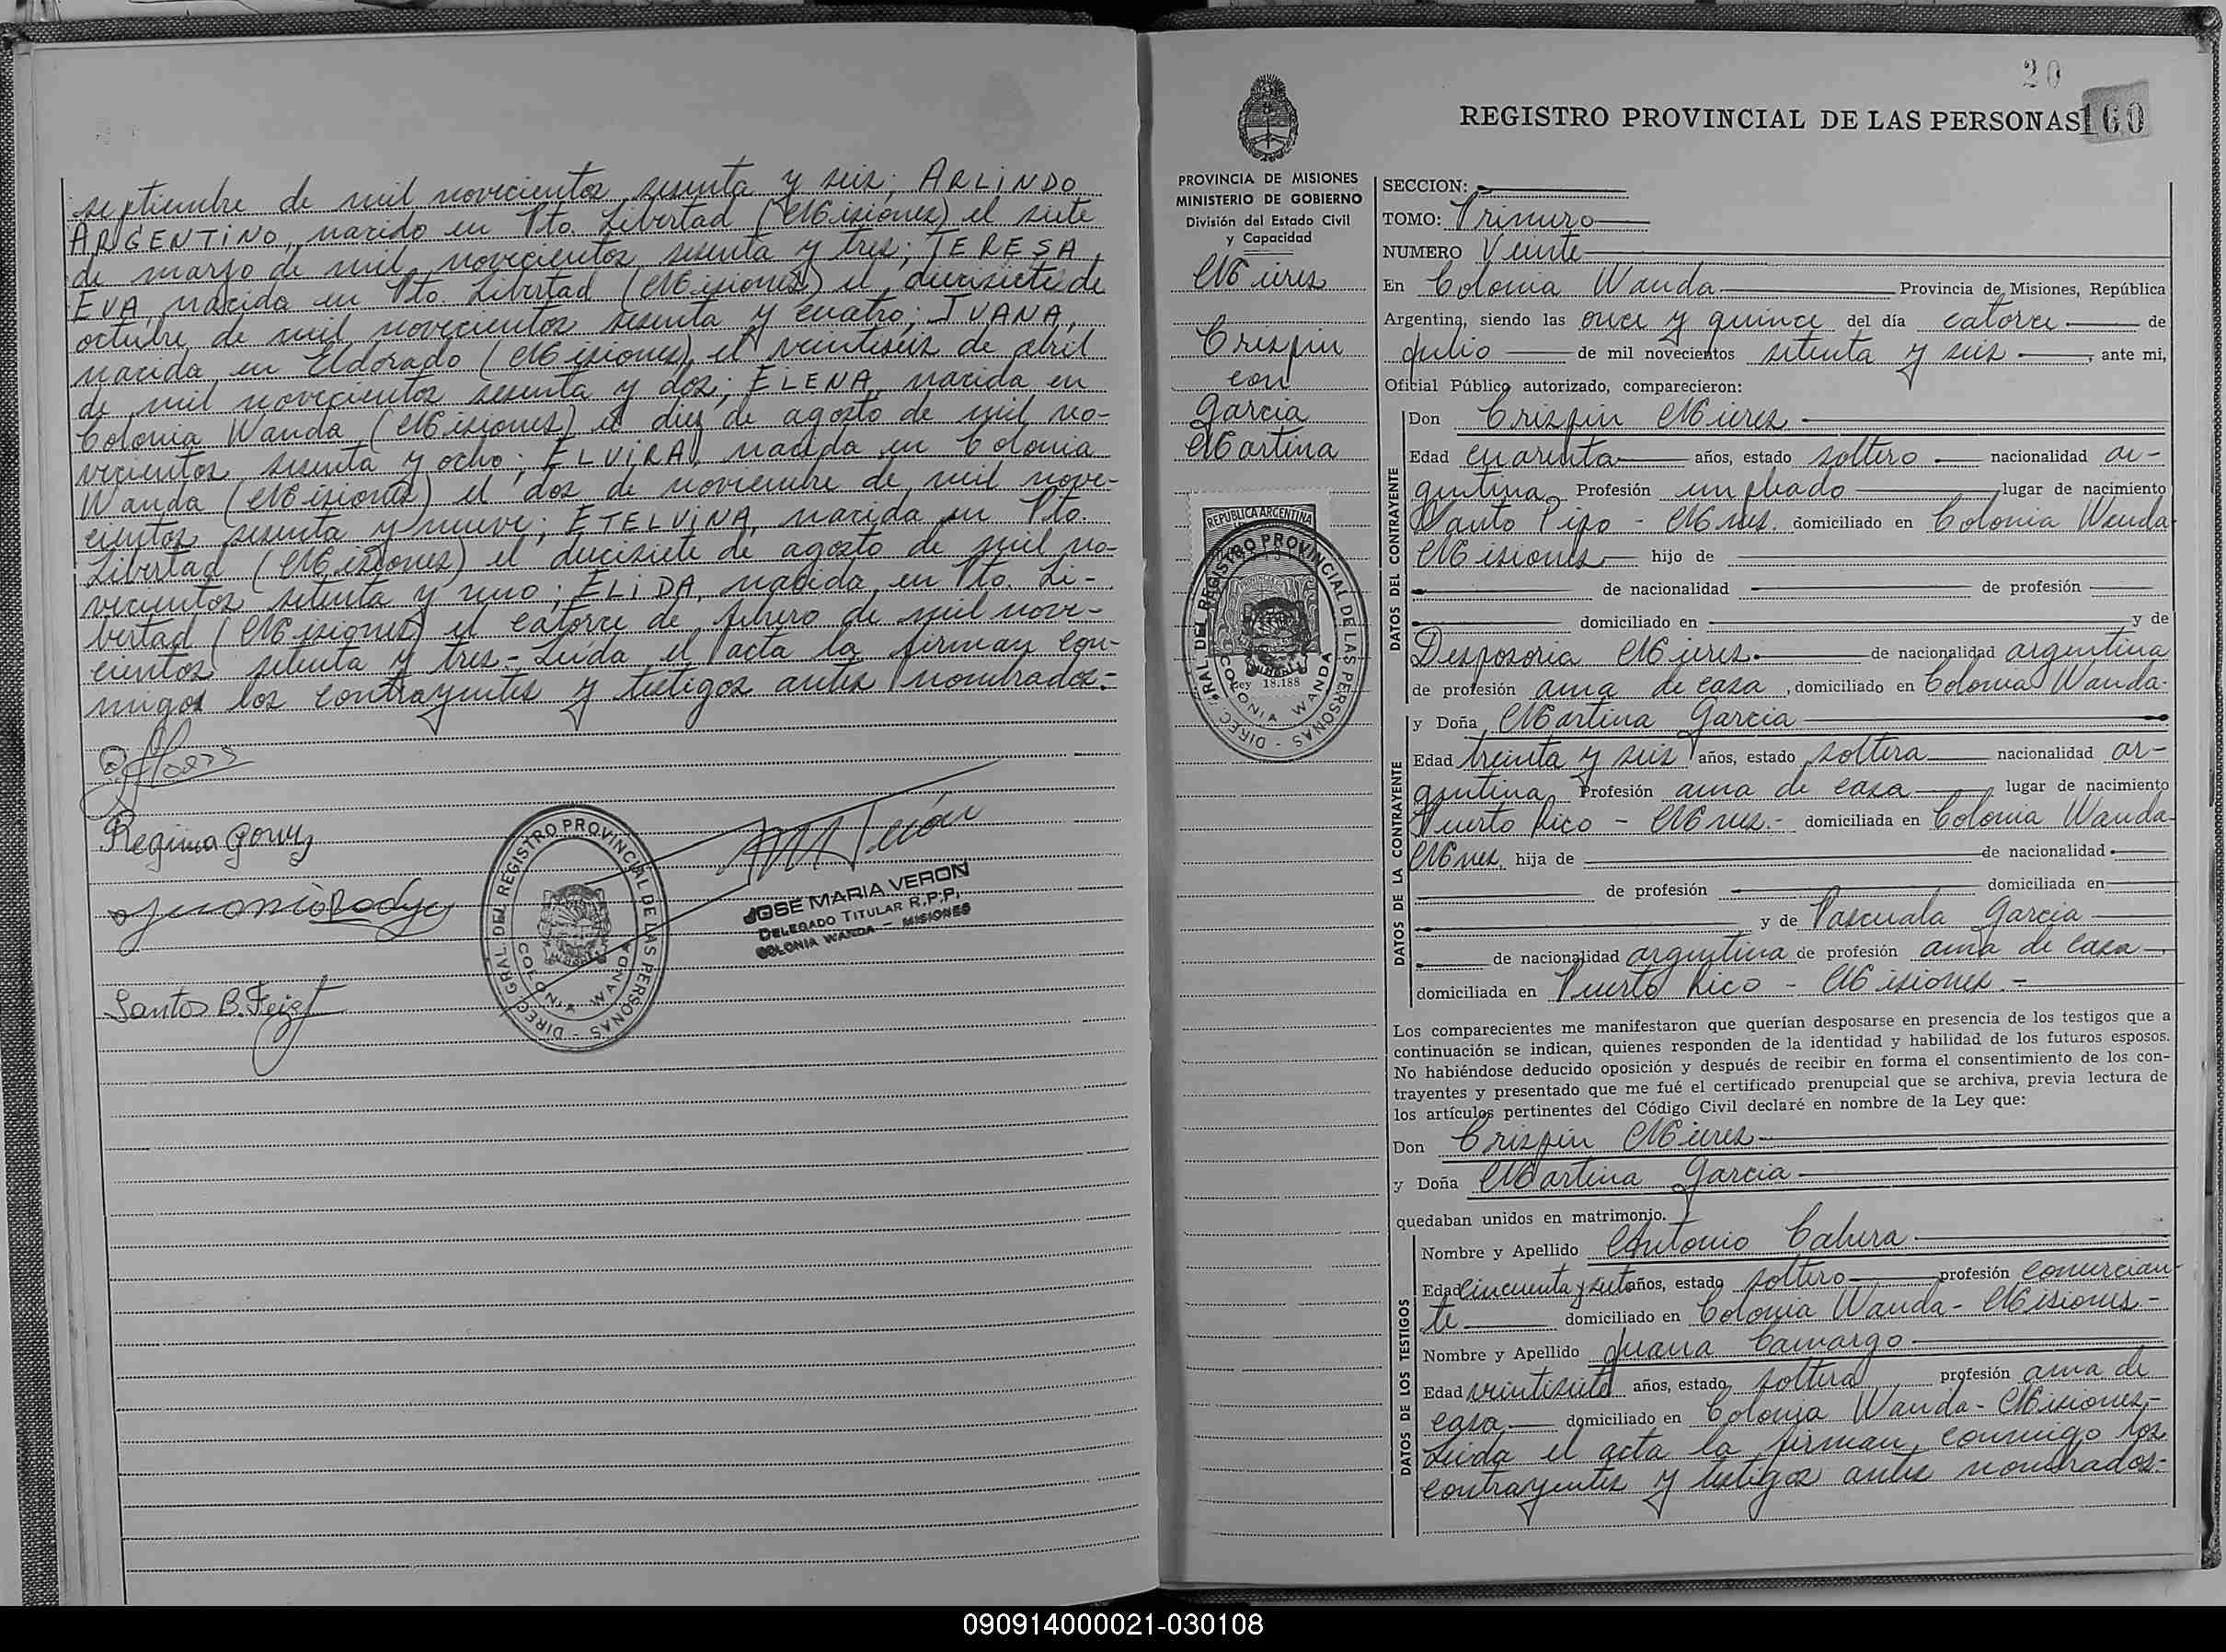 septiembre de mil novecientos sesenta y seis; ARLINDO
ARGENTINO, nacido en Pto. Libertad (Misiones) el siete
de marzo de mil novecientos sesenta y tres; TERESA
EVA, nacida en Pto. Libertad (Misiones) el diecisiete de
octubre de mil novecientos sesenta y cuatro; JUANA,
nacida en Eldorado (Misiones) el veintiseis de abril
de mil novecientos sesenta y dos; ELENA, nacida en
Colonia Wanda (Misiones) el diez de agosto de mil no-
vecientos sesenta y ocho; ELVIRA, nacida en Colonia
Wanda (Misiones) el dos de noviembre de mil nove-
cientos sesenta y nueve; ETELVINA, nacida en Pto.
Libertad (Misiones) el diecisiete de agosto de mil no-
vecientos setenta y uno; ELIDA, nacida en Pto. Li-
bertad (Misiones) el catorce de febrero de mil nove-
cientos setenta y tres.- Leida el acta la firman con-
migo los contrayentes y testigos antes nombrados.-
Regina
Santos B.
DIREC. GRAL. DEL REGISTRO PROVINCIAL DE LAS PERSONAS
COLONIA WANDA
JOSE MARIA VERON
DELEGADO TITULAR R.P.P.
COLONIA WANDA - MISIONES
20
REGISTRO PROVINCIAL DE LAS PERSONAS 160
PROVINCIA DE MISIONES
MINISTERIO DE GOBIERNO
División del Estado Civil
y Capacidad
Mieres
Crispin
con
Garcia
Martina
REPUBLICA ARGENTINA
DIREC. GRAL. DEL REGISTRO PROVINCIAL DE LAS PERSONAS
COLONIA WANDA
Ley 18.188
SECCION:
TOMO: Primero
NUMERO Veinte
En Colonia Wanda Provincia de Misiones, República
Argentina, siendo las once y quince del día catorce de
Julio de mil novecientos setenta y seis, ante mi,
Oficial Público autorizado, comparecieron:
DATOS DEL CONTRAYENTE
Don Crispin Mieres
Edad cuarenta años, estado soltero nacionalidad ar-
gentina Profesión empleado, lugar de nacimiento
Santo Pipo - Mnes. domiciliado en Colonia Wanda
Misiones hijo de
de nacionalidad de profesión
domiciliado en y de
Desposoria Mieres de nacionalidad argentina
de profesión ama de casa, domiciliado en Colonia Wanda-
DATOS DE LA CONTRAYENTE
y Doña Martina Garcia
Edad treinta y seis años, estado soltera nacionalidad ar-
gentina Profesión ama de casa, lugar de nacimiento
Puerto Rico - Mnes.- domiciliada en Colonia Wanda-
Mnes. hija de de nacionalidad
de profesión domiciliada en
y de Pascuala Garcia
de nacionalidad argentina de profesión ama de casa
domiciliada en Puerto Rico - Misiones.-
Los comparecientes me manifestaron que querían desposarse en presencia de los testigos que a
continuación se indican, quienes responden de la identidad y habilidad de los futuros esposos.
No habiéndose deducido oposición y después de recibir en forma el consentimiento de los con-
trayentes y presentado que me fué el certificado prenupcial que se archiva, previa lectura de
los artículos pertinentes del Código Civil declaré en nombre de la Ley que:
Don Crispin Mieres
y Doña Martina Garcia
quedaban unidos en matrimonio.
DATOS DE LOS TESTIGOS
Nombre y Apellido Antonio Cabrera
Edad cincuenta y siete años, estado soltero profesión comercian-
te domiciliado en Colonia Wanda - Misiones-
Nombre y Apellido Juana Camargo
Edad veintisiete años, estado soltera profesión ama de
casa domiciliado en Colonia Wanda - Misiones.-
Leida el acta la firman conmigo los
contrayentes y testigos antes nombrados.-
090914000021-030108